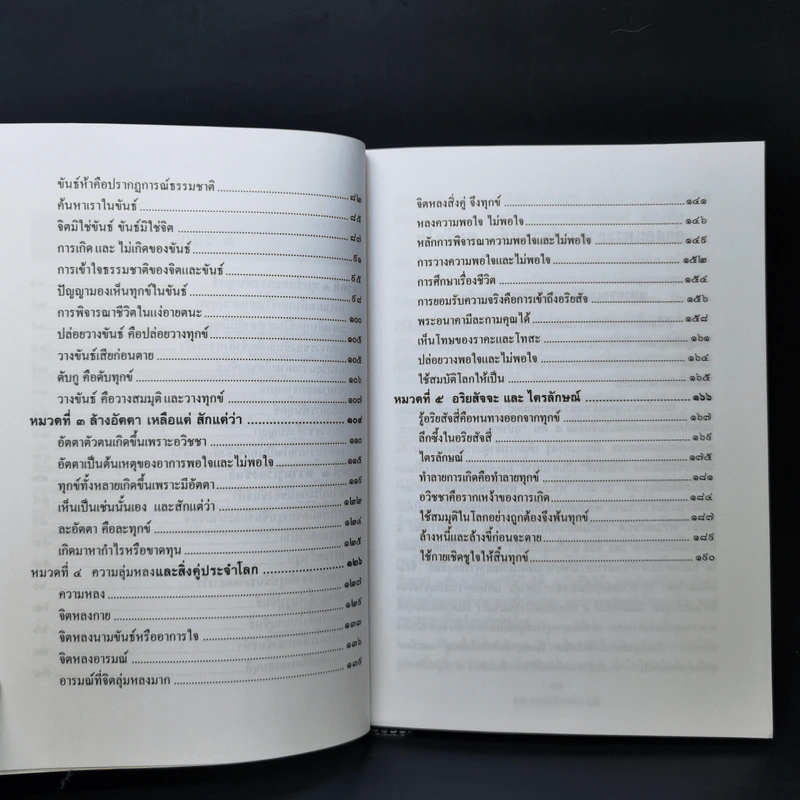 ขันธ์ห้าคือปรากฏการณ์ธรรมชาติ ๘๒
ค้นหาเราในขันธ์ ๘๕
จิตมิใช่ขันธ์ ขันธ์มิใช่จิต ๘๗
การเกิด และ ไม่เกิดของขันธ์ ๙๑
การเข้าใจธรรมชาติของจิตและขันธ์ ๙๕
ปัญญามองเห็นทุกข์ในขันธ์ ๙๘
การพิจารณาชีวิตในแง่อายตนะ ๑๐๐
ปล่อยวางขันธ์ คือปล่อยวางทุกข์ ๑๐๕
วางขันธ์เสียก่อนตาย ๑๐๕
ดับกู คือดับทุกข์ ๑๐๖
วางขันธ์ คือวางสมมุติ และวางทุกข์ ๑๐๘
หมวดที่ ๓ ล้างอัตตา เหลือแต่ สักแต่ว่า ๑๐๙
อัตตาตัวตนเกิดขึ้นเพราะอวิชชา ๑๑๐
อัตตาเป็นต้นเหตุของอาการพอใจและไม่พอใจ ๑๑๕
ทุกข์ทั้งหลายเกิดขึ้นเพราะมีอัตตา ๑๑๙
เห็นเป็นเช่นนั้นเอง และสักแต่ว่า ๑๒๒
ละอัตตา คือละทุกข์ ๑๒๔
เกิดมาหากำไรหรือขาดทุน ๑๒๕
หมวดที่ ๔ ความลุ่มหลงและสิ่งคู่ประจำโลก ๑๒๖
ความหลง ๑๒๗
จิตหลงกาย ๑๒๙
จิตหลงนามขันธ์หรืออาการใจ ๑๓๓
จิตหลงอารมณ์ ๑๓๖
อารมณ์ที่จิตลุ่มหลงมาก ๑๓๙
จิตหลงสิ่งคู่ จึงทุกข์ ๑๔๑
หลงความพอใจ ไม่พอใจ ๑๔๖
หลักการพิจารณาความพอใจและไม่พอใจ ๑๔๙
การวางความพอใจและไม่พอใจ ๑๕๒
การศึกษาเรื่องชีวิต ๑๕๔
การยอมรับความจริงคือการเข้าถึงอริยสัจ ๑๕๖
พระอนาคามีละกามคุณได้ ๑๕๘
เห็นโทษของราคะและโทสะ ๑๖๑
ปล่อยวางพอใจและไม่พอใจ ๑๖๔
ใช้สมบัติโลกให้เป็น ๑๖๕
หมวดที่ ๕ อริยสัจจะ และ ไตรลักษณ์ ๑๖๖
รู้อริยสัจสี่คือหนทางออกจากทุกข์ ๑๖๗
ลึกซึ้งในอริยสัจสี่ ๑๖๙
ไตรลักษณ์ ๑๗๕
ทำลายการเกิดคือทำลายทุกข์ ๑๘๑
อวิชชาคือรากเหง้าของการเกิด ๑๘๔
ใช้สมมุติในโลกอย่างถูกต้องจึงพ้นทุกข์ ๑๘๗
ล้างหนี้และล้างขี้ก่อนจะตาย ๑๘๙
ใช้กายเชิดชูใจให้สิ้นทุกข์ ๑๙๐